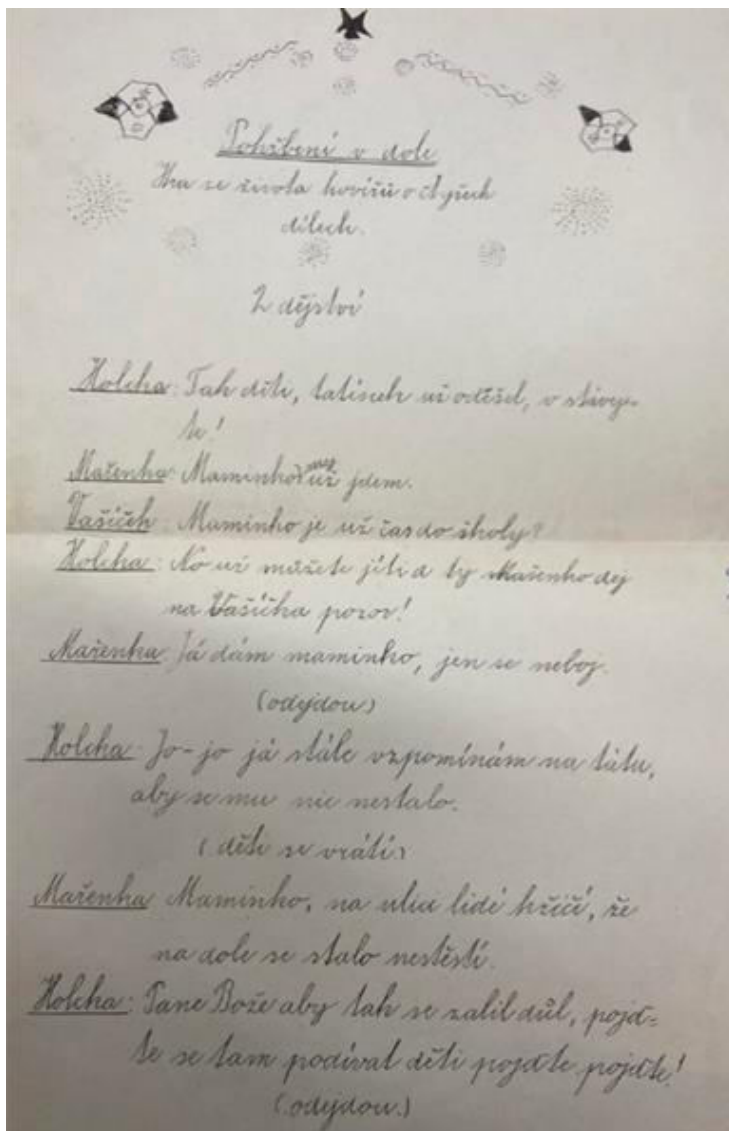 Pohřbení v dole
Hra ze života havířů o čtyřech
dílech.
2 dějství
Holcha: Tak děti, tatínek už odešel, vstávej-
te!
Mařenka: Maminko my už jdem.
Vašíček: Maminko je už čas do školy?
Holcha: No už můžete jíti a ty Mařenko dej
na Vašíčka pozor!
Mařenka: Já dám maminko, jen se neboj.
(odejdou)
Holcha: Jo-jo já stále vzpomínám na tátu,
aby se mu nic nestalo.
(děti se vrátí)
Mařenka Maminko, na ulici lidé křičí, že
na dole se stalo nestěstí.
Holcha: Pane Bože aby tak se zalil důl, pojď=
te se tam podívat děti pojďte pojďte!
(odejdou.)